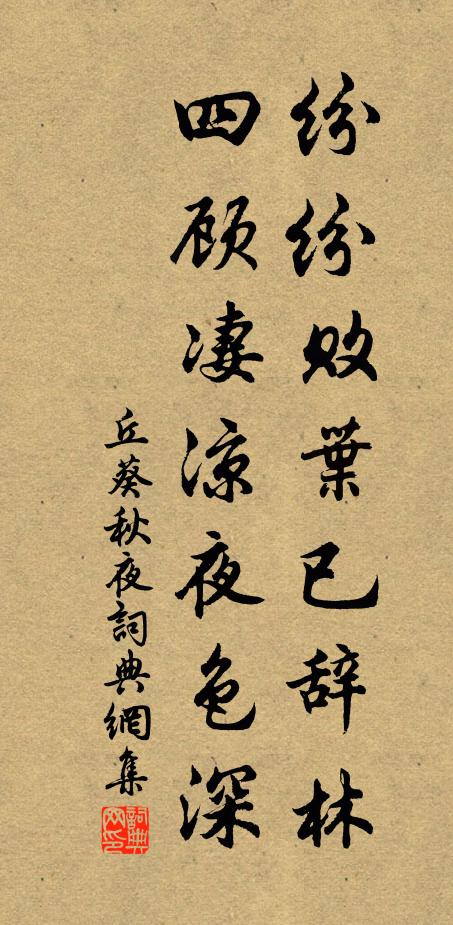 纷纷败葉已辞林
四顾凄凉夜色深
丘葵秋夜詞典網集
詞典网印